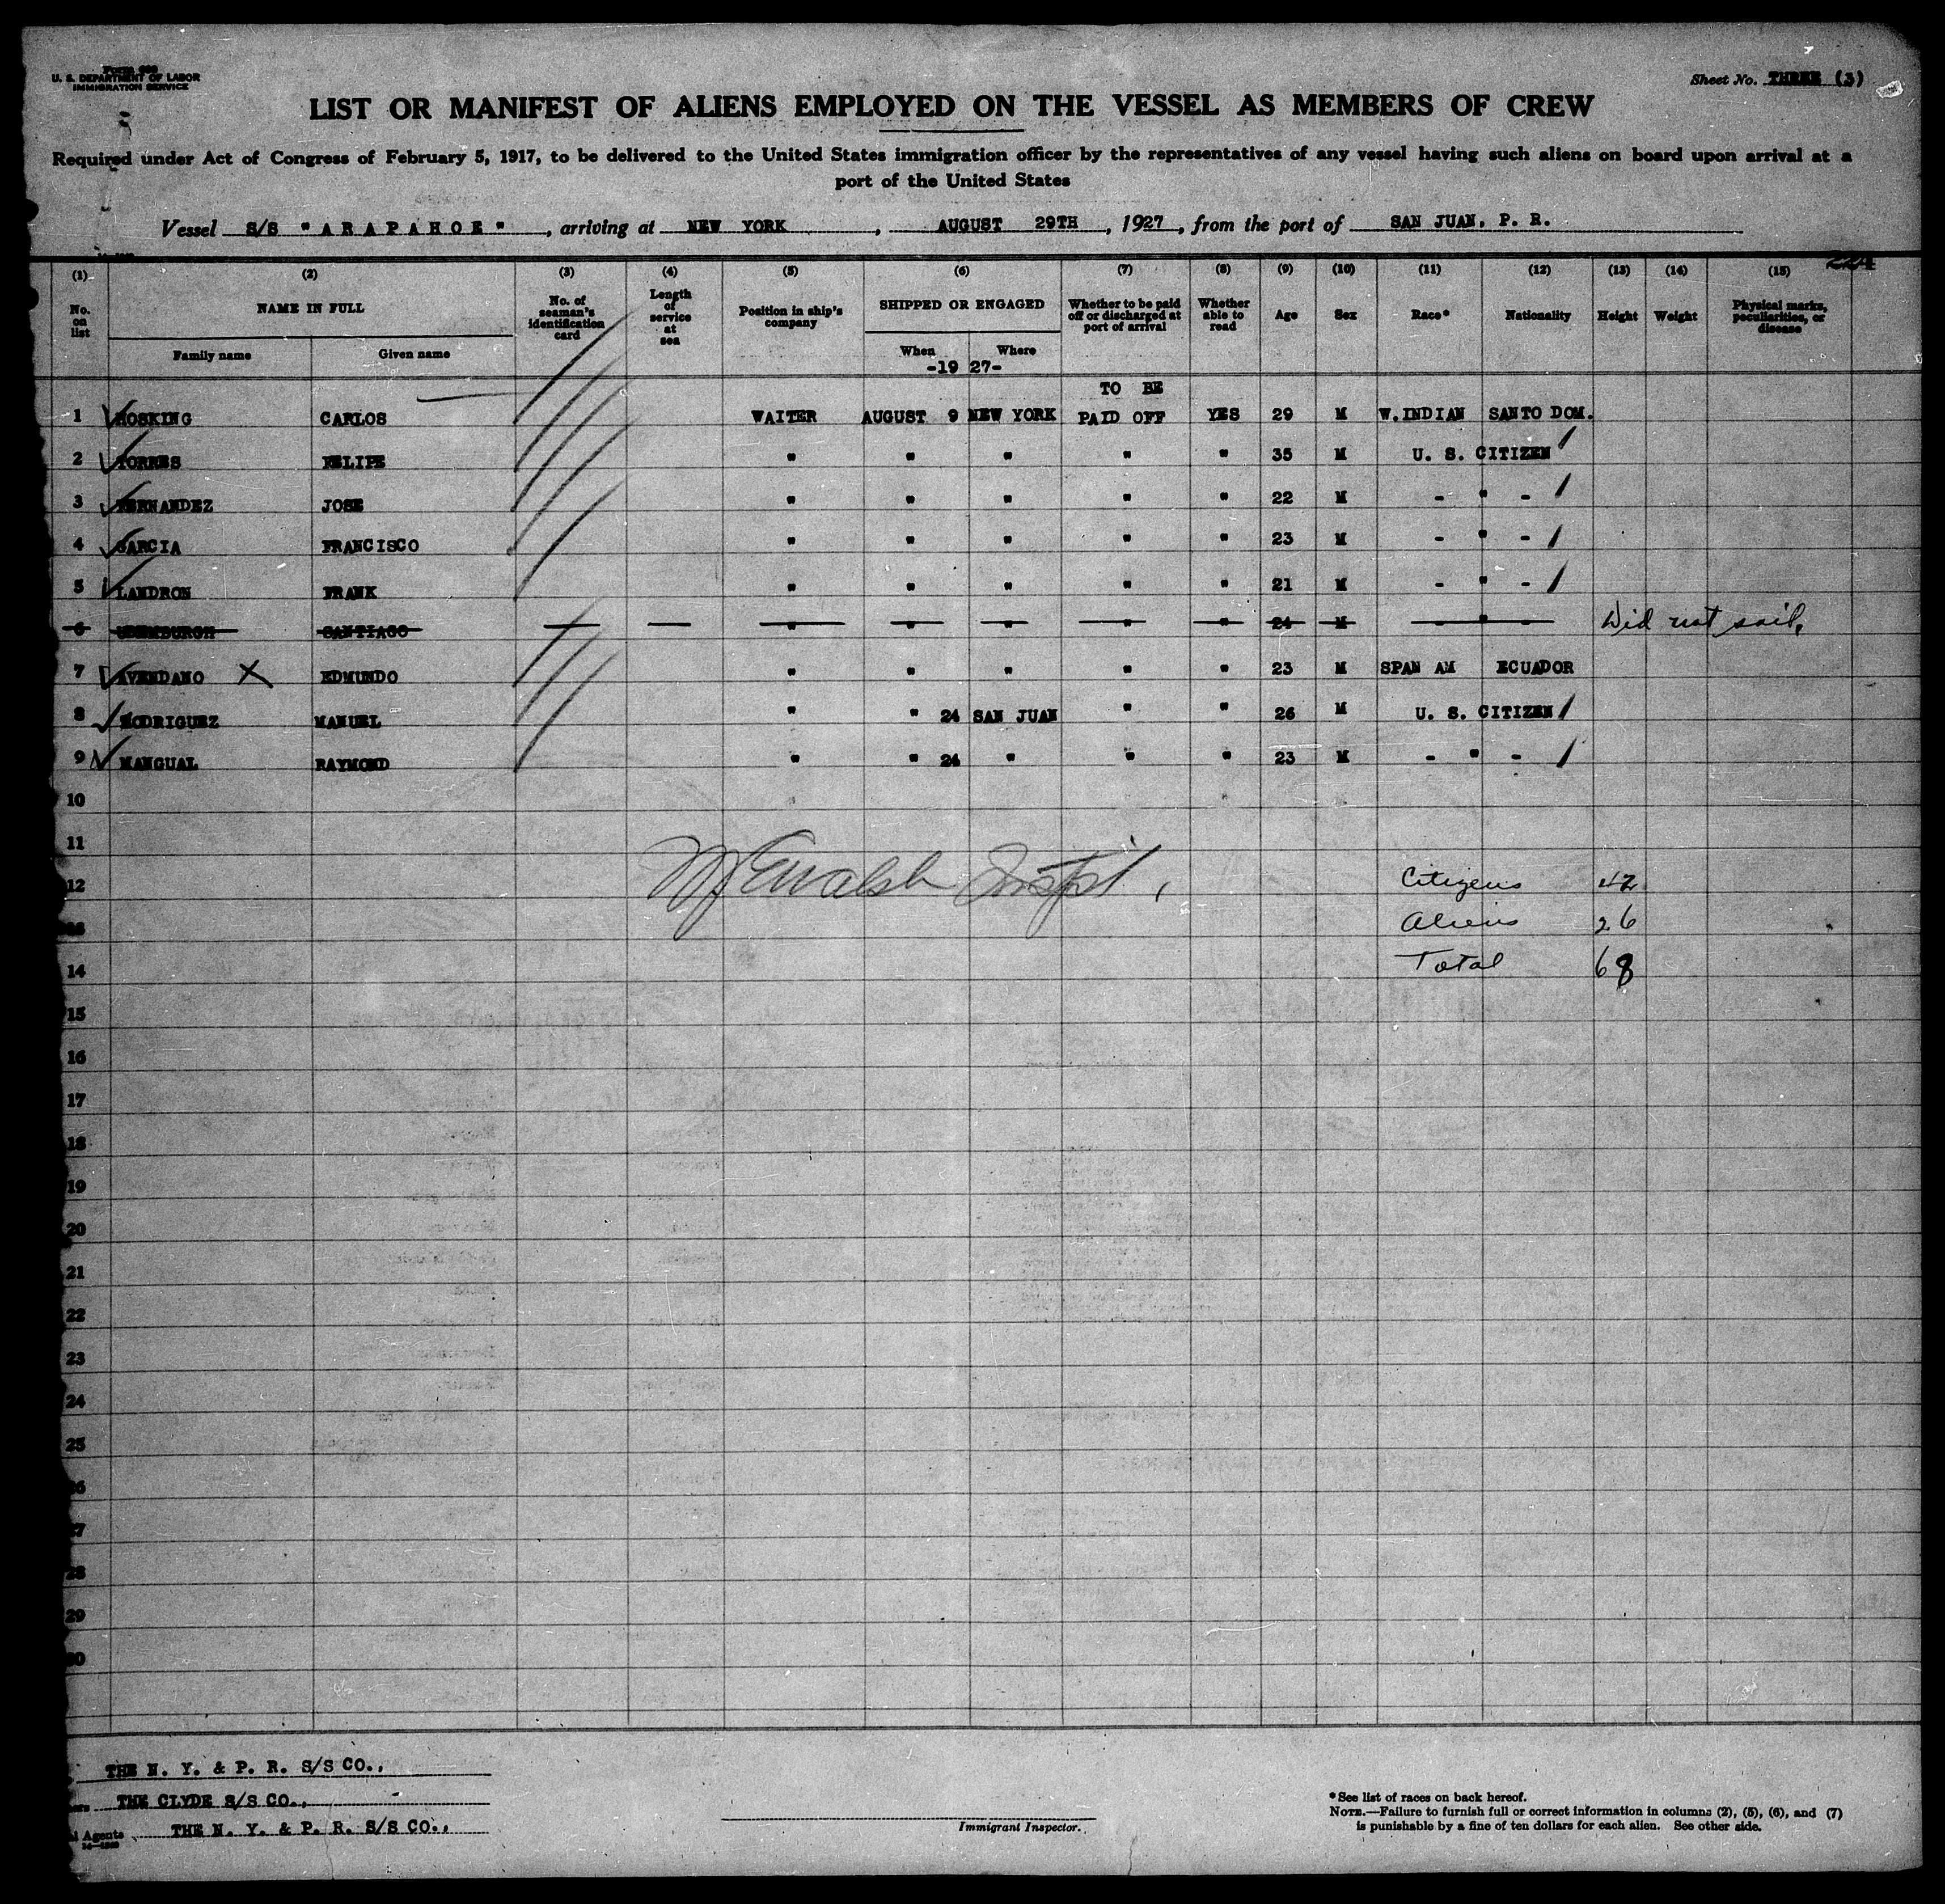 Form 689
U. S. DEPARTMENT OF LABOR
IMMIGRATION SERVICE
Sheet No. THREE (3)
LIST OR MANIFEST OF ALIENS EMPLOYED ON THE VESSEL AS MEMBERS OF CREW
Required under Act of Congress of February 5, 1917, to be delivered to the United States immigration officer by the representatives of any vessel having such aliens on board upon arrival at a
port of the United States
Vessel S/S "ARAPAHOE", arriving at NEW YORK, AUGUST 29TH, 1927, from the port of SAN JUAN, P. R.
(1) (2) (3) (4) (5) (6) (7) (8) (9) (10) (11) (12) (13) (14) (15)
No. on list NAME IN FULL No. of seaman's identification card Length of service at sea Position in ship's company SHIPPED OR ENGAGED Whether to be paid off or discharged at port of arrival Whether able to read Age Sex Race* Nationality Height Weight Physical marks, peculiarities, or disease
Family name Given name When Where
-19 27-
TO BE
1 HOSKING CARLOS WAITER AUGUST 9 NEW YORK PAID OFF YES 29 M W.INDIAN SANTO DOM.
2 TORRES FELIPE " " " " " 35 M U. S. CITIZEN
3 FERNANDEZ JOSE " " " " " 22 M - " -
4 GARCIA FRANCISCO " " " " " 23 M - " -
5 LANDRON FRANK " " " " " 21 M - " -
6 SANTIAGO " " " " " 24 M " Did not sail.
7 AVENDANO X EDMUNDO " " " " " 23 M SPAN AM ECUADOR
8 RODRIGUEZ MANUEL " " 24 SAN JUAN " " 26 M U. S. CITIZEN
9 MANGUAL RAYMOND " " 24 " " " 23 M - " -
10
11
12 Citizens 42
Aliens 26
14 Total 68
15
16
17
18
19
20
21
22
23
24
25
29
THE N. Y. & P. R. S/S CO.,
THE CLYDE S/S CO.,
Agents THE N. Y. & P. R. S/S CO.,
Immigrant Inspector.
*See list of races on back hereof.
NOTE.—Failure to furnish full or correct information in columns (2), (5), (6), and (7)
is punishable by a fine of ten dollars for each alien. See other side.